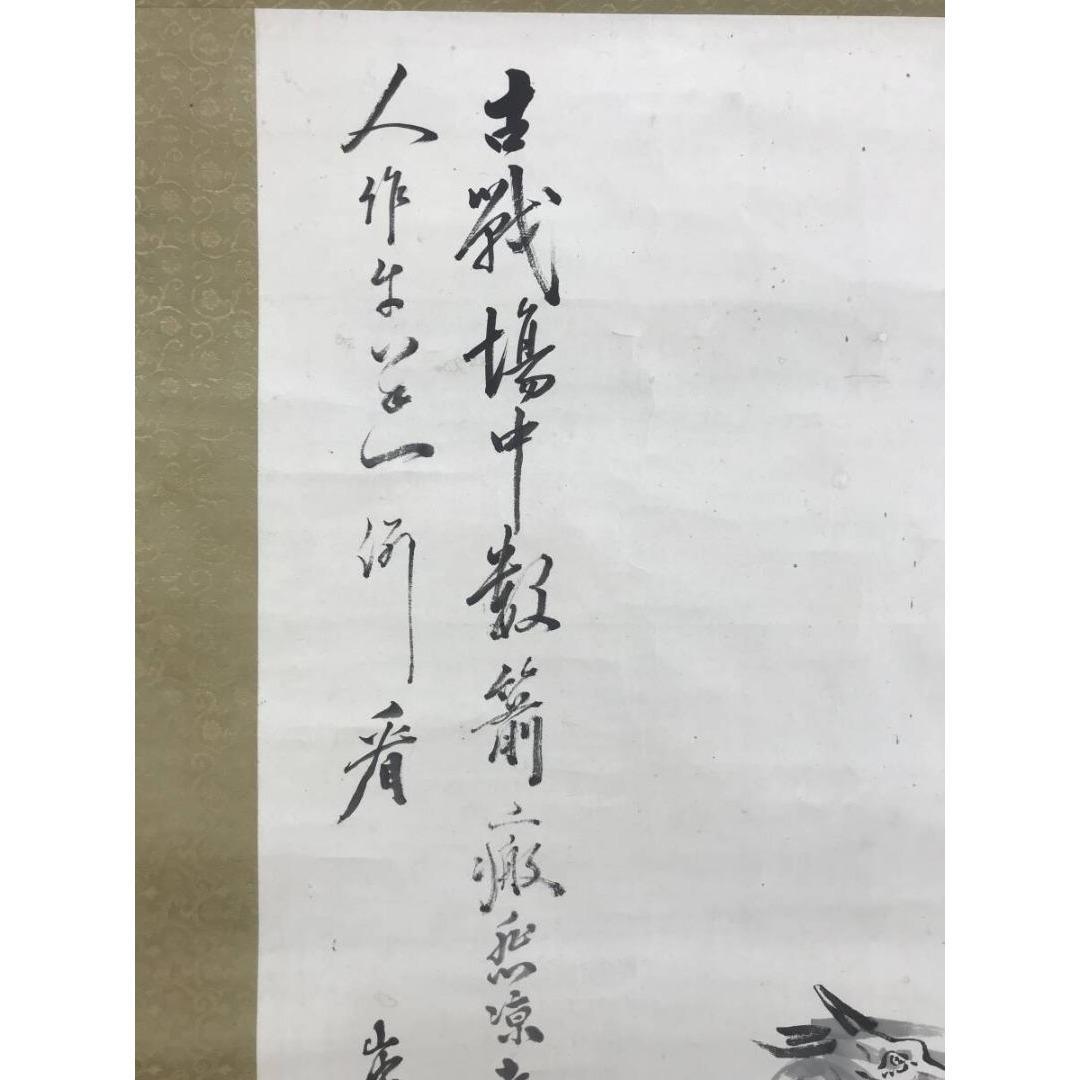 古戰場中數箭瘢悲涼
人作牛羊一例看